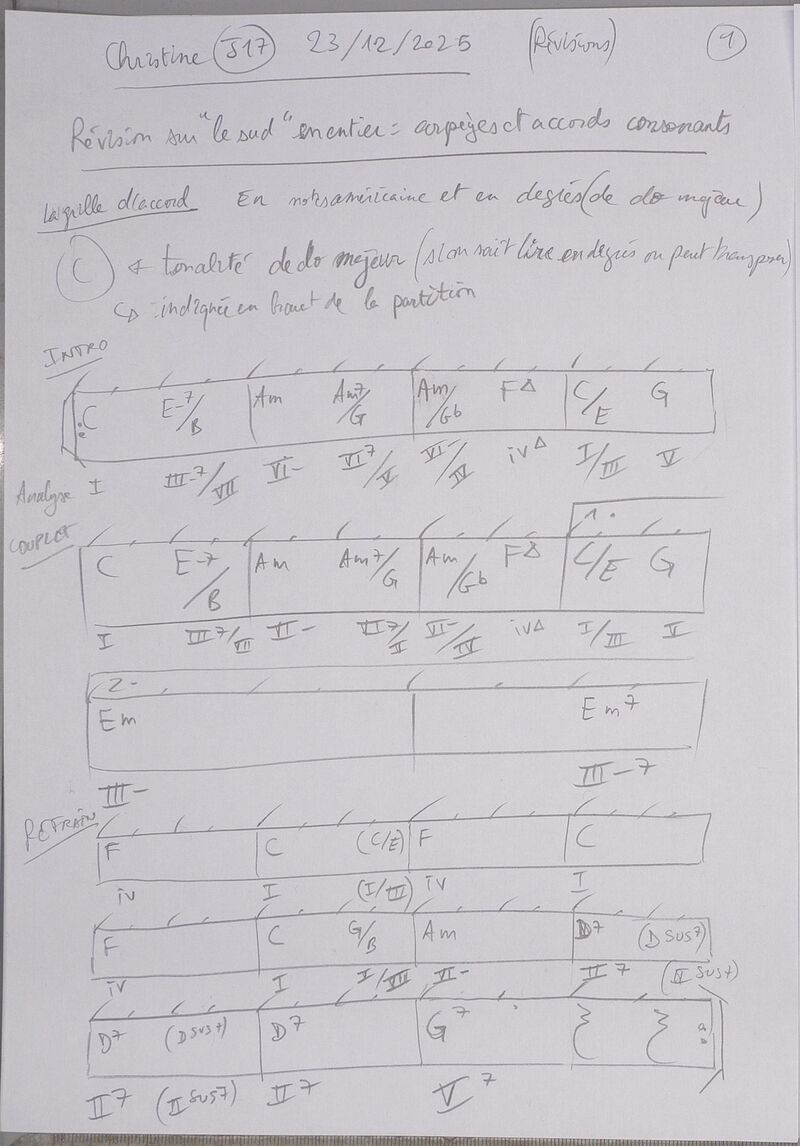 Christine J17 23/12/2025 (Révisions) 1
Révision sur "le sud" en entier = arpèges et accords consonants
La grille d'accord En notes américaine et en degrés (de do majeur)
C tonalité de do majeur (si on sait lire en degrés on peut transposer)
↳ indiquée en haut de la partition
INTRO
C E-7/B Am Am7/G Am/Gb FΔ C/E G
Analyse I III-7/VII VI- VI7/V VI-/IV ivΔ I/III V
COUPLET
1.
C E-7/B Am Am7/G Am/Gb FΔ C/E G
I III7/VII VI- VI7/V VI-/IV ivΔ I/III V
2-
Em Em7
III- III-7
REFRAIN
F C (C/E) F C
iv I (I/III) iv I
F C G/B Am D7 (Dsus7)
iv I I/VII VI- II7 (IIsus7)
D7 (Dsus7) D7 G7
II7 (IIsus7) II7 V7